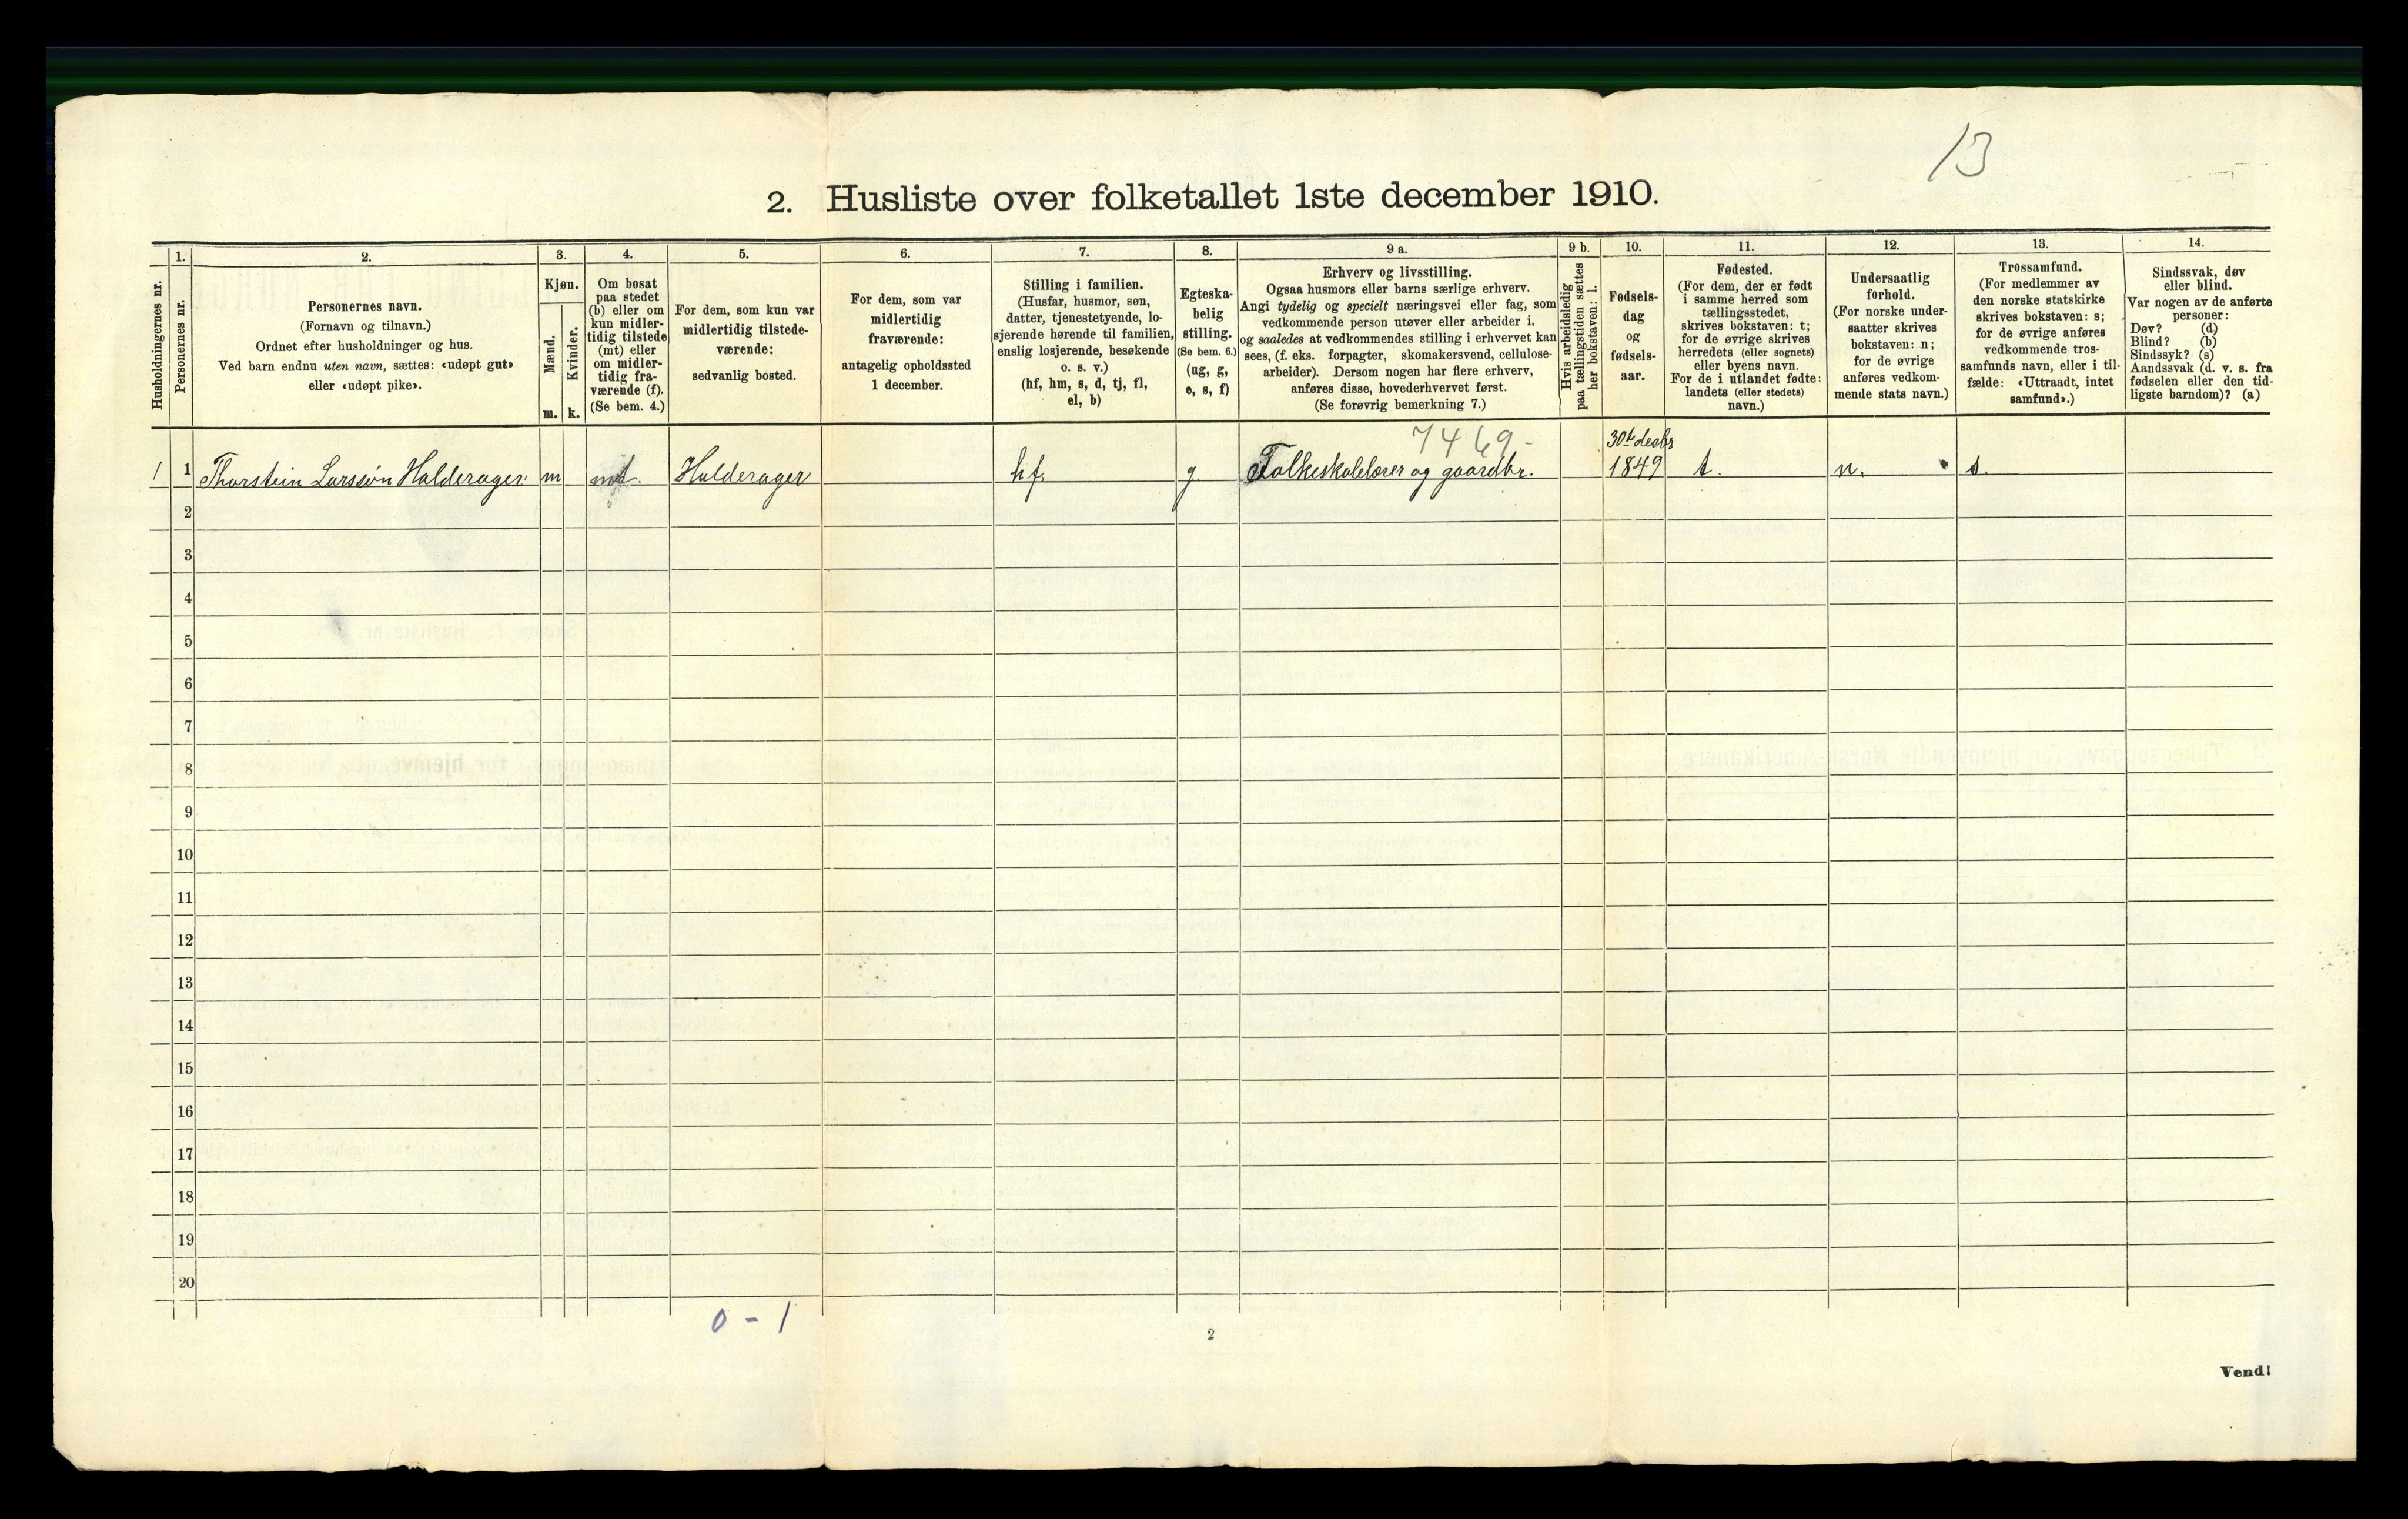 13
2. Husliste over folketallet 1ste december 1910.
Husholdningernes nr.
1.
Personernes nr.
2.
Personernes navn.
(Fornavn og tilnavn.)
Ordnet efter husholdninger og hus.
Ved barn endnu uten navn, sættes: «udøpt gut»
eller «udøpt pike».
3.
Kjøn.
Mænd.
Kvinder.
m. k.
4.
Om bosat
paa stedet
(b) eller om
kun midler-
tidig tilstede
(mt) eller
om midler-
tidig fra-
værende (f).
(Se bem. 4.)
5.
For dem, som kun var
midlertidig tilstede-
værende:
sedvanlig bosted.
6.
For dem, som var
midlertidig
fraværende:
antagelig opholdssted
1 december.
7.
Stilling i familien.
(Husfar, husmor, søn,
datter, tjenestetyende, lo-
sjerende hørende til familien,
enslig losjerende, besøkende
o. s. v.)
(hf, hm, s, d, tj, fl,
el, b)
8.
Egteska-
belig
stilling.
(Se bem. 6.)
(ug, g,
e, s, f)
9 a.
Erhverv og livsstilling.
Ogsaa husmors eller barns særlige erhverv.
Angi tydelig og specielt næringsvei eller fag, som
vedkommende person utøver eller arbeider i,
og saaledes at vedkommendes stilling i erhvervet kan
sees, (f. eks. forpagter, skomakersvend, cellulose-
arbeider). Dersom nogen har flere erhverv,
anføres disse, hovederhvervet først.
(Se forøvrig bemerkning 7.)
9 b.
Hvis arbeidsledig
paa tællingstiden sættes
her bokstaven: l.
10.
Fødsels-
dag
og
fødsels-
aar.
11.
Fødested.
(For dem, der er født
i samme herred som
tællingsstedet,
skrives bokstaven: t;
for de øvrige skrives
herredets (eller sognets)
eller byens navn.
For de i utlandet fødte:
landets (eller stedets)
navn.)
12.
Undersaatlig
forhold.
(For norske under-
saatter skrives
bokstaven: n;
for de øvrige
anføres vedkom-
mende stats navn.)
13.
Trossamfund.
(For medlemmer av
den norske statskirke
skrives bokstaven: s;
for de øvrige anføres
vedkommende tros-
samfunds navn, eller i til-
fælde: «Uttraadt, intet
samfund».)
14.
Sindssvak, døv
eller blind.
Var nogen av de anførte
personer:
Døv? (d)
Blind? (b)
Sindssyk? (s)
Aandssvak (d. v. s. fra
fødselen eller den tid-
ligste barndom)? (a)
7469-
30te desbr
1 1 Thorstein Larssøn Halderager m mt. Halderager hf. g. Folkeskolelærer og gaardbr. 1849 t. n. s.
2
3
4
5
6
7
8
9
10
11
12
13
14
15
16
17
18
19
20
0 - 1
2
Vend!